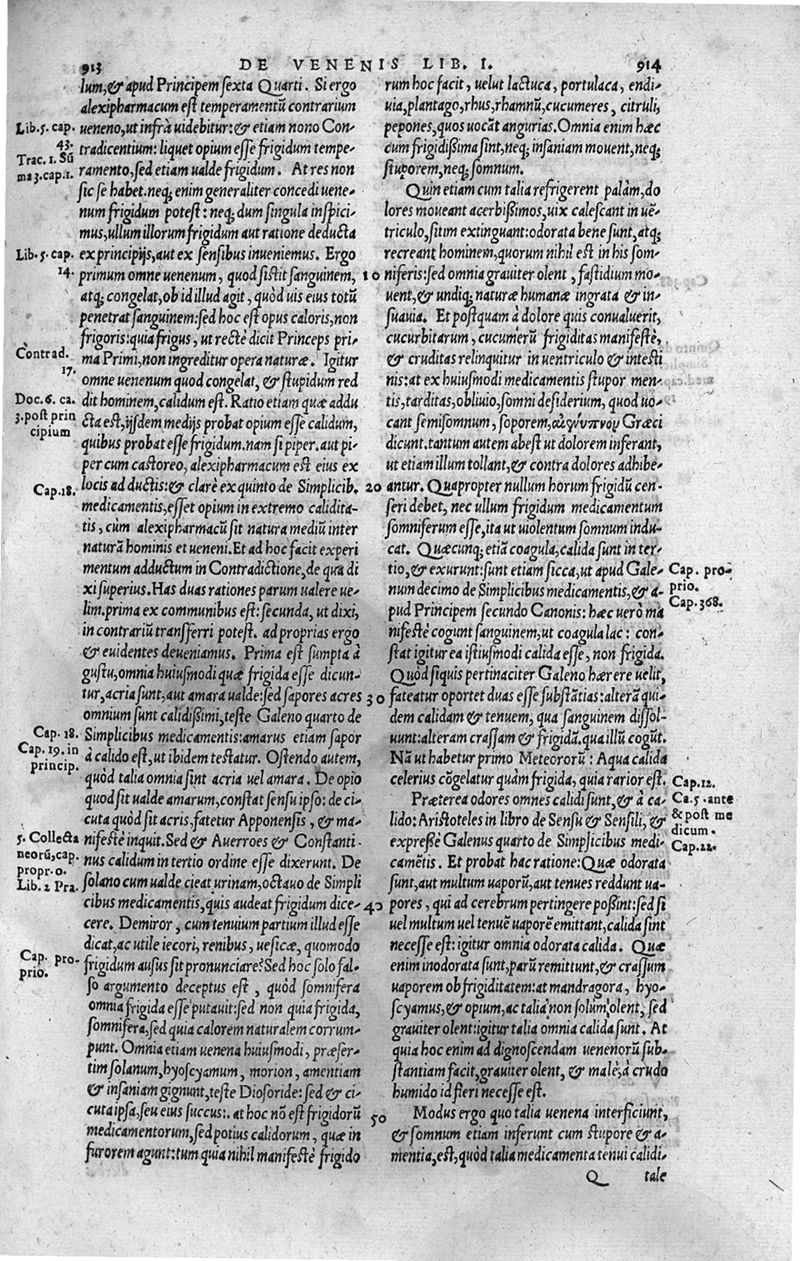 913 DE VENENIS LIB. I. 914
lum,& apud Principem sexta Quarti. Si ergo
alexipharmacum est temperamentũ contrarium
Lib.5. cap. 43. ueneno,ut infrà uidebitur:& etiam nono Con-
Trac. 1. Sũ tradicentium: liquet opium esse frigidum tempe-
ma 3.cap.1. ramento,sed etiam ualde frigidum. At res non
sic se habet.neq; enim generaliter concedi uene-
num frigidum potest: neq; dum singula inspici-
mus,ullum illorum frigidum aut ratione deducta
Lib.5. cap. ex principijs,aut ex sensibus inueniemus. Ergo
14. primum omne uenenum, quod sistit sanguinem,
atq; congelat,ob id illud agit, quòd uis eius totũ
penetrat sanguinem:sed hoc est opus caloris,non
frigoris:quia frigus, ut rectè dicit Princeps pri-
Contrad. 17. ma Primi,non ingreditur opera naturæ. Igitur
omne uenenum quod congelat, & stupidum red
Doc.6. ca. dit hominem,calidum est. Ratio etiam quæ addu
3.post prin cta est,ijsdem medijs probat opium esse calidum,
cipium quibus probat esse frigidum.nam si piper.aut pi-
per cum castoreo, alexipharmacum est eius ex
Cap.18. locis ad ductis:& clarè ex quinto de Simplicib.
medicamentis,esset opium in extremo calidita-
tis, cùm alexipharmacũ sit natura mediũ inter
naturã hominis et ueneni.Et ad hoc facit experi
mentum adductum in Contradictione,de qua di
xi superius.Has duas rationes parum ualere ue-
lim.prima ex communibus est: secunda, ut dixi,
in contrariũ transferri potest. ad proprias ergo
& euidentes deueniamus. Prima est sumpta à
gustu,omnia huiusmodi quæ frigida esse dicun-
tur,acria sunt,aut amara ualde:sed sapores acres
omnium sunt calidißimi,teste Galeno quarto de
Cap. 18. Simplicibus medicamentis:amarus etiam sapor
Cap. 19. in à calido est,ut ibidem testatur. Ostendo autem,
princip. quòd talia omnia sint acria uel amara. De opio
quod sit ualde amarum,constat sensu ipso: de ci-
cuta quòd sit acris,fatetur Apponensis, & ma-
5. Collecta nifestè inquit.Sed & Auerroes & Constanti-
neorũ,cap. nus calidum in tertio ordine esse dixerunt. De
propr.o. solano cum ualde cieat urinam,octauo de Simpli
Lib. 2 Pra. cibus medicamentis,quis audeat frigidum dice-
cere. Demiror, cum tenuium partium illud esse
dicat,ac utile iecori, renibus, uesicæ, quomodo
Cap. pro- frigidum ausus sit pronunciare? Sed hoc solo fal-
prio. so argumento deceptus est, quòd somnifera
omnia frigida esse putauit:sed non quia frigida,
somnifera,sed quia calorem naturalem corrum-
punt. Omnia etiam uenena huiusmodi, præser-
tim solanum,hyoscyamum, morion, amentiam
& insaniam gignunt,teste Diosoride: sed & ci-
cuta ipsa,seu eius succus:. at hoc nõ est frigidorũ
medicamentorum,sed potius calidorum, quæ in
furorem agunt:tum quia nihil manifestè frigido
rum hoc facit, uelut lactuca, portulaca, endi-
uia,plantago,rhus,rhamnũ,cucumeres, citruli,
pepones,quos uocãt angurias.Omnia enim hæc
cum frigidißima sint,neq; insaniam mouent,neq;
stuporem,neq; somnum.
Quin etiam cum talia refrigerent palàm,do
lores moueant acerbißimos,uix calescant in uẽ-
triculo,sitim extinguant:odorata bene sunt,atq;
recreant hominem,quorum nihil est in his som-
10 niferis:sed omnia grauiter olent, fastidium mo-
uent,& undiq; naturæ humanæ ingrata & in-
suauia. Et postquam à dolore quis conualuerit,
cucurbitarum, cucumerũ frigiditas manifestè,
& cruditas relinquitur in uentriculo & intesti
nis:at ex huiusmodi medicamentis stupor men-
tis,tarditas,obliuio,somni desiderium, quod uo-
cant semisomnum, soporem,ἀγνυπνον Græci
dicunt.tantum autem abest ut dolorem inferant,
ut etiam illum tollant,& contra dolores adhibe-
20 antur. Quapropter nullum horum frigidũ cen-
seri debet, nec ullum frigidum medicamentum
somniferum esse,ita ut uiolentum somnum indu-
cat. Quæcunq; etiã coagula,calida sunt in ter-
tio,& exurunt:sunt etiam sicca,ut apud Gale- Cap. pro-
num decimo de Simplicibus medicamentis,& a- prio.
pud Principem secundo Canonis: hæc uerò ma Cap.368.
nifestè cogunt sanguinem,ut coagula lac: con-
stat igitur ea istiusmodi calida esse, non frigida.
Quòd siquis pertinaciter Galeno hærere uelit,
30 fateatur oportet duas esse substãtias:alterã qui-
dem calidam & tenuem, qua sanguinem dissol-
uunt:alteram crassam & frigidã.qua illũ cogũt.
Nã ut habetur primo Meteororũ: Aqua calida
celerius cõgelatur quàm frigida, quia rarior est. Cap.12.
Præterea odores omnes calidi sunt,& à ca- Ca.5 .ante
lido: Aristoteles in libro de Sensu & Sensili, & & post me
expreßè Galenus quarto de Simplicibus medi- dicum.
camẽtis. Et probat hac ratione:Quæ odorata Cap.22.
sunt,aut multum uaporũ,aut tenues reddunt ua-
40 pores, qui ad cerebrum pertingere poßint:sed si
uel multum uel tenuẽ uaporẽ emittant,calida sint
necesse est: igitur omnia odorata calida. Quæ
enim inodorata sunt,parũ remittunt,& crassum
uaporem ob frigiditatem: at mandragora, hyo-
scyamus,& opium, ac talia non solùm olent, sed
grauiter olent:igitur talia omnia calida sunt. At
quia hoc enim ad dignoscendam uenenorũ sub-
stantiam facit,grauiter olent, & malè,à crudo
humido id fieri necesse est.
50 Modus ergo quo talia uenena interficiunt,
& somnum etiam inferunt cum stupore & a-
mentia,est,quòd talia medicamenta tenui calidi-
Q tale